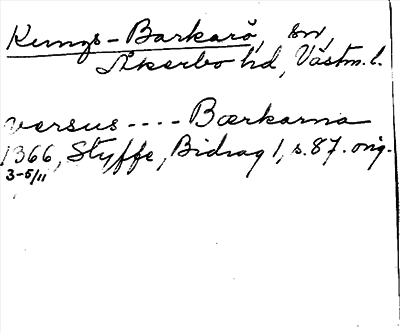 Kungs-Barkarö, sn,
Åkerbo hd, Västm. l.
versus ---- Bærkarna
1366, Styffe, Bidrag 1, s. 87. orig.
3-5/11